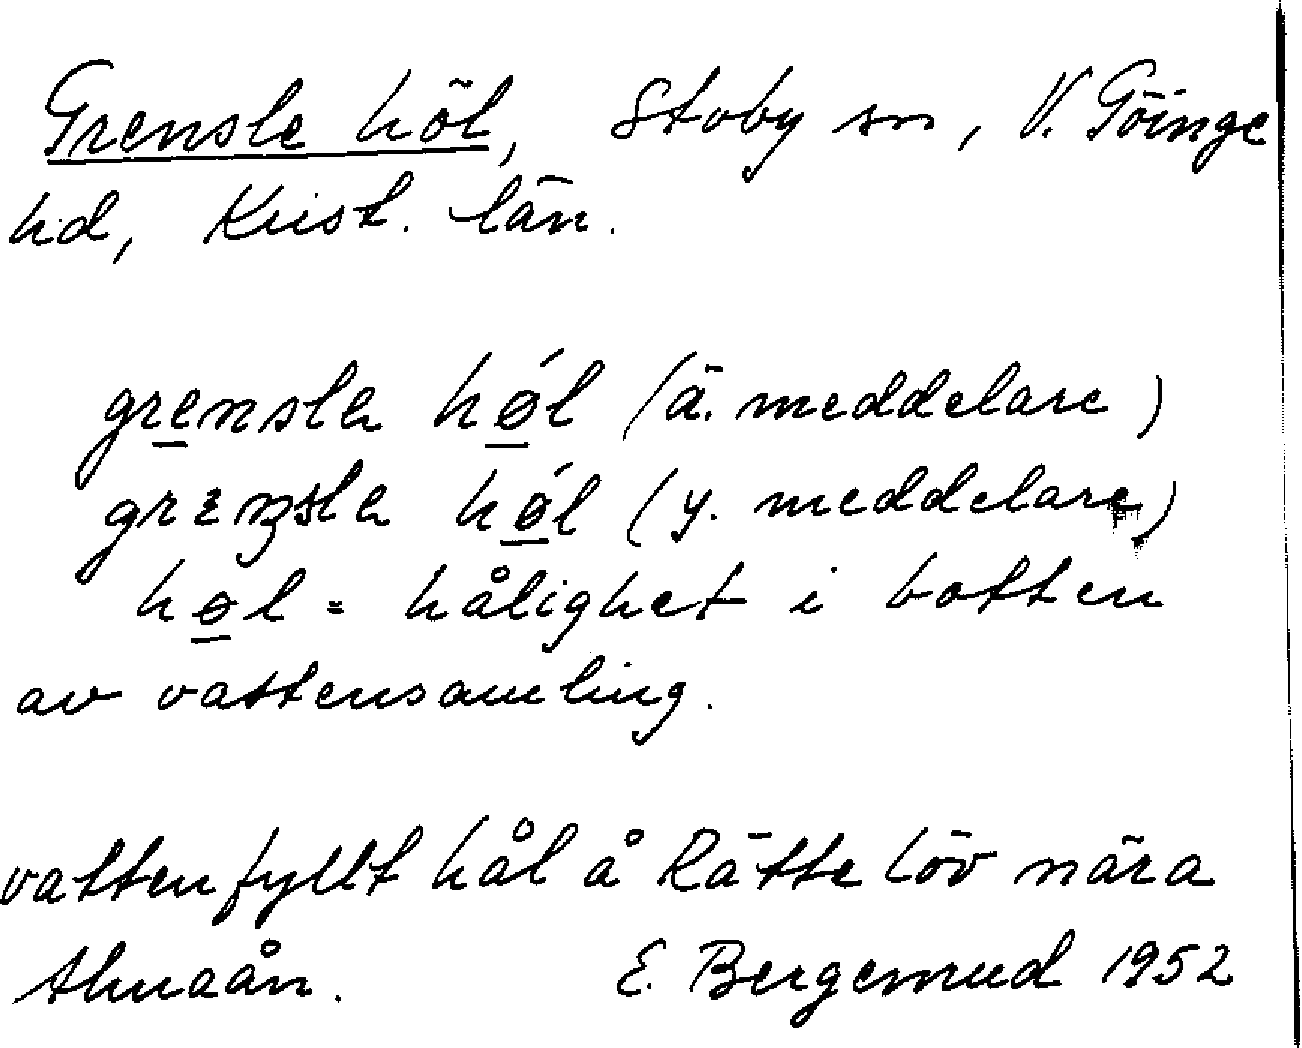 Grensle höl, Stoby sn, V. Göinge
hd, Krist. län.
grensla hǿl (ä. meddelare)
grɛnsla hǿl (y. meddelare)
høl = hålighet i botten
av vattensamling.
vattenfyllt hål å Rätte löv nära
Almaån. E. Bergemrud 1952